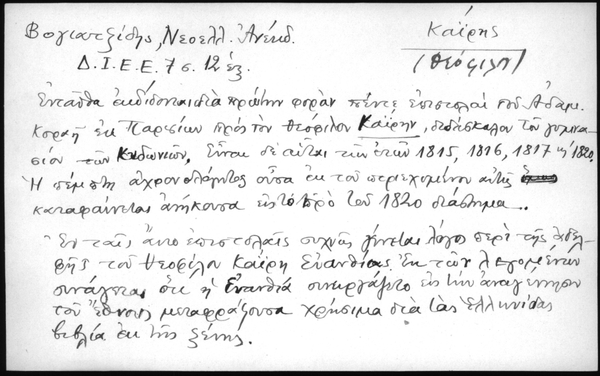 Βογιατζίδης, Νεοελλ. Ἀνέκδ.
Καΐρης
(Θεόφιλος)
Δ.Ι.Ε.Ε. 7 σ. 12 ἑξ.
Ἐνταῦθα ἐκδίδονται διὰ πρώτην φορὰν πέντε ἐπιστολαὶ τοῦ Ἀδαμ.
Κοραῆ ἐκ Παρισίων πρὸς τὸν Θεόφιλον Καΐρην, διδάσκαλον τοῦ γυμνα-
σίου τῶν Κυδωνιῶν. Εἶναι δὲ αὗται τῶν ἐτῶν 1815, 1816, 1817 καὶ 1820.
Ἡ πέμπτη ἀχρονολόγητος οὖσα ἐκ τοῦ περιεχομένου αὐτῆς
καταφαίνεται ἀνήκουσα εἰς τὸ πρὸ τοῦ 1820 διάστημα..
Ἐν ταῖς ἄνω ἐπιστολαῖς συχνὰ γίνεται λόγος περὶ τῆς ἀδελ-
φῆς τοῦ Θεοφίλου Καΐρη Εὐανθίας. Ἐκ τῶν λεγομένων
συνάγεται ὅτι ἡ Εὐανθία συνειργάζετο εἰς τὴν ἀναγέννησιν
τοῦ Ἔθνους μεταφράζουσα χρήσιμα διὰ τὰς Ἑλληνίδας
βιβλία ἐκ τῆς ξένης.